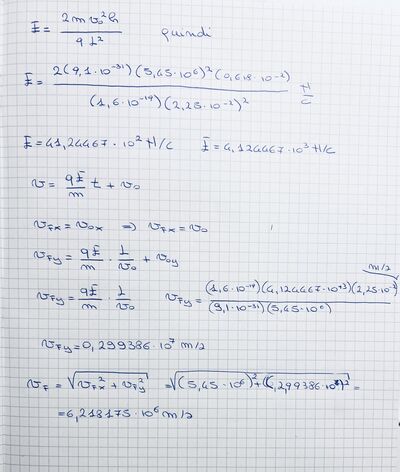 E = 2 m v₀² h / q L² quindi
E = 2(9,1·10⁻³¹)(5,45·10⁶)²(0,618·10⁻²) / (1,6·10⁻¹⁹)(2,25·10⁻²)² N/C
E = 41,24467·10² N/C E = 4,124467·10³ N/C
v = qE/m t + v₀
v_fx = v₀x ⇒ v_fx = v₀
v_fy = qE/m · L/v₀ + v₀y
v_fy = qE/m · L/v₀ v_fy = (1,6·10⁻¹⁹)(4,124467·10⁺³)(2,25·10⁻²) / (9,1·10⁻³¹)(5,45·10⁶) m/s
v_fy = 0,299386·10⁷ m/s
v_f = √(v_fx² + v_fy²) = √((5,45·10⁶)² + (2,99386·10⁶)²) =
= 6,218175·10⁶ m/s